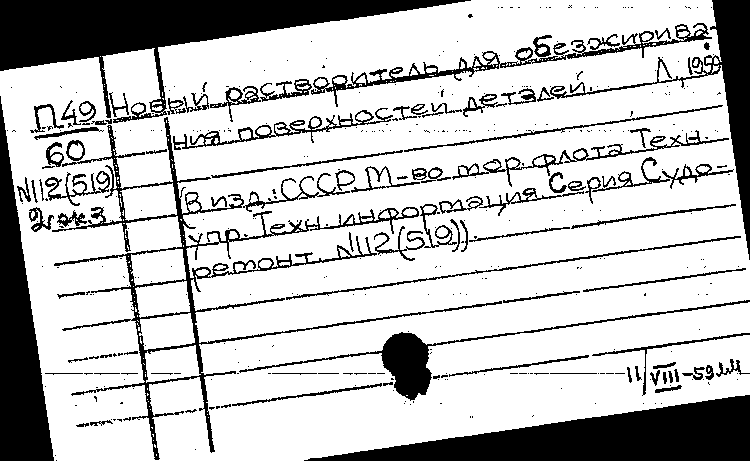 П49
60
N112(519)
2 экз
Новый растворитель для обезжирива-
ния поверхностей деталей. Л., 1959
(В изд.: СССР. М-во мор. флота Техн.
упр. Техн. информация. Серия Судо-
ремонт. N112(519)).
11/VIII-59